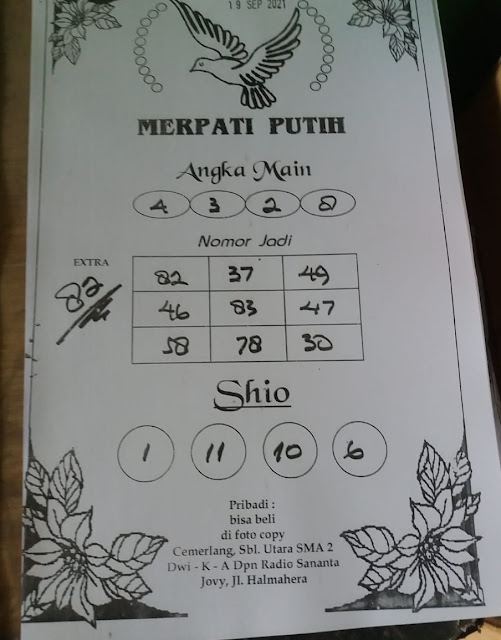 19 SEP 2021
MERPATI PUTIH
Angka Main
4 3 2 8
Nomor Jadi
EXTRA
82
82 37 49
46 83 47
58 78 30
Shio
1 11 10 6
Pribadi :
bisa beli
di foto copy
Cemerlang, Sbl. Utara SMA 2
Dwi - K - A Dpn Radio Sananta
Jovy, Jl. Halmahera